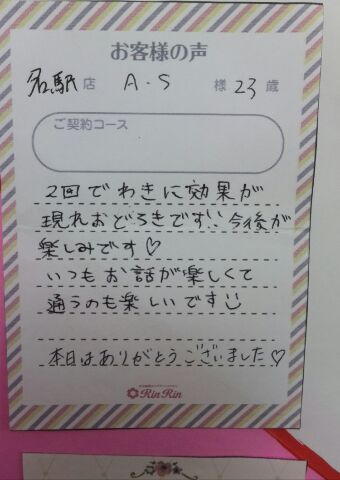 お客様の声
名駅店 A・S 様 23歳
ご契約コース
2回でわきに効果が
現れおどろきです!! 今後が
楽しみです♡
いつもお話が楽しくて
通うのも楽しいです
本日はありがとうございました♡
RinRin